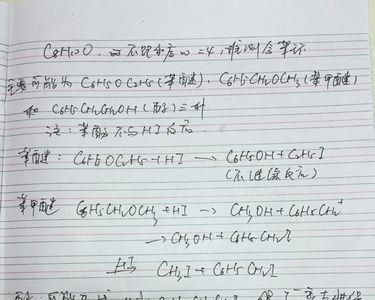 C8H10O. 不饱和度Ω=4, 推测含苯环
主要可能为 C6H5OC2H5(苯醚), C6H5CH2OCH3(苯甲醚)
和 C6H5CH2CH2OH(醇)三种
注: 苯酚不与HI反应.
苯醚: C6H5OC2H5+HI → C6H5OH + C2H5I
(不继续反应)
苯甲醚 C6H5CH2OCH3+HI → CH3OH + C6H5CH2+
→ CH3OH + C6H5CH2I
HI→ CH3I + C6H5CH2I